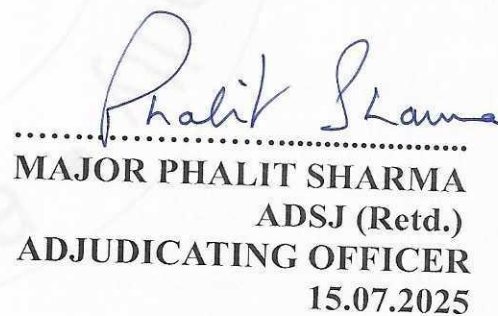 Phalit Sharma
MAJOR PHALIT SHARMA
ADSJ (Retd.)
ADJUDICATING OFFICER
15.07.2025